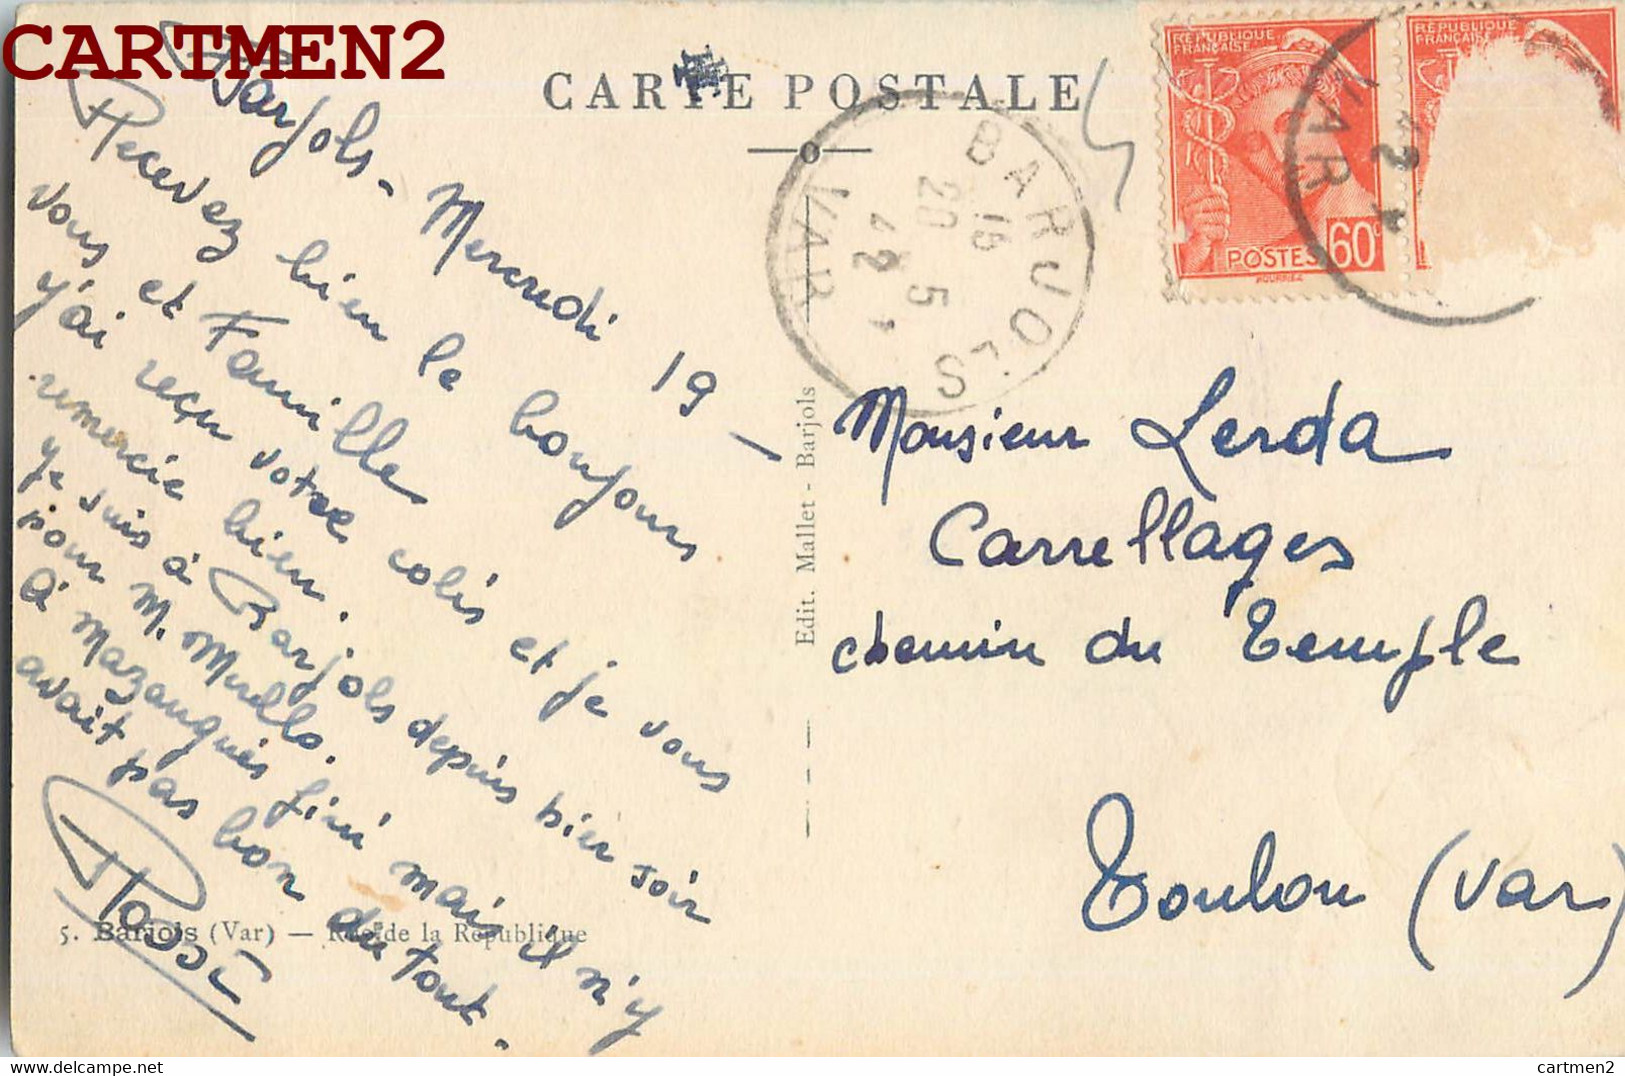 CARTMEN2
CARTE POSTALE
RÉPUBLIQUE
FRANÇAISE
POSTES 60c
RÉPUBLIQUE
FRANÇAISE
VAR
42
BARJOLS
15
20 5
42
VAR
Barjols - Mercredi 19 -
Recevez bien le bonjour
vous et Famille
j'ai reçu votre colis et je vous
remercie bien.
je suis à Barjols depuis hier soir
pour M.
à Mazaugues fini mais il n'y
avait pas bon du tout.
Rossi
5. Barjols (Var) — Rue de la République
Edit. Mallet - Barjols
Monsieur Lerda
Carrellages
chemin du Temple
Toulon (Var)
cartmen2